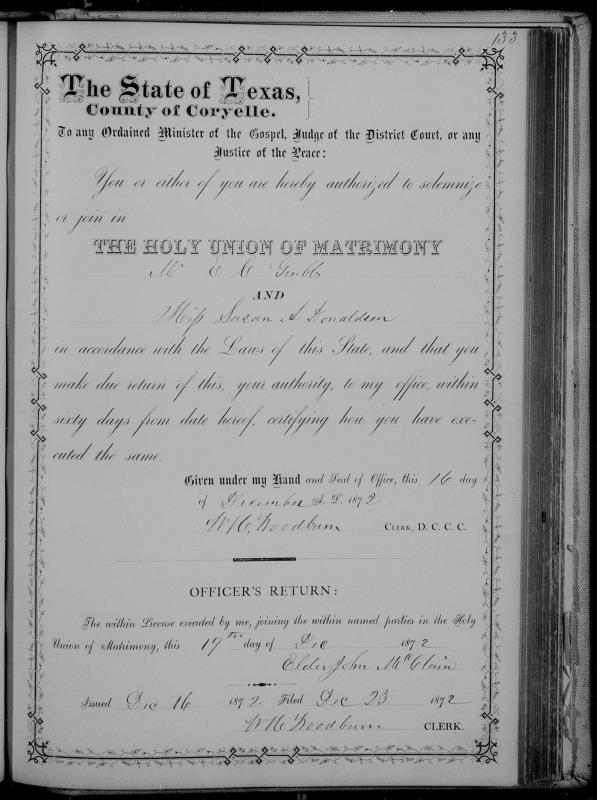 133
The State of Texas,
County of Coryelle.
To any Ordained Minister of the Gospel, Judge of the District Court, or any
Justice of the Peace:
You or either of you are hereby authorized to solemnize
or join in
THE HOLY UNION OF MATRIMONY
Mr E C Grubb
AND
Miss Susan A Donaldson
in accordance with the Laws of this State, and that you
make due return of this, your authority, to my office, within
sixty days from date hereof, certifying how you have exe-
cuted the same.
Given under my Hand and Seal of Office, this 16 day
of December A. D. 1872
W H Woodburn CLERK, D. C. C. C.
OFFICER'S RETURN:
The within License executed by me, joining the within named parties in the Holy
Union of Matrimony, this 19th day of Dec 1872
Elder John McClain
Issued Dec 16 1872. Filed Dec 23 1872
W H Woodburn CLERK.